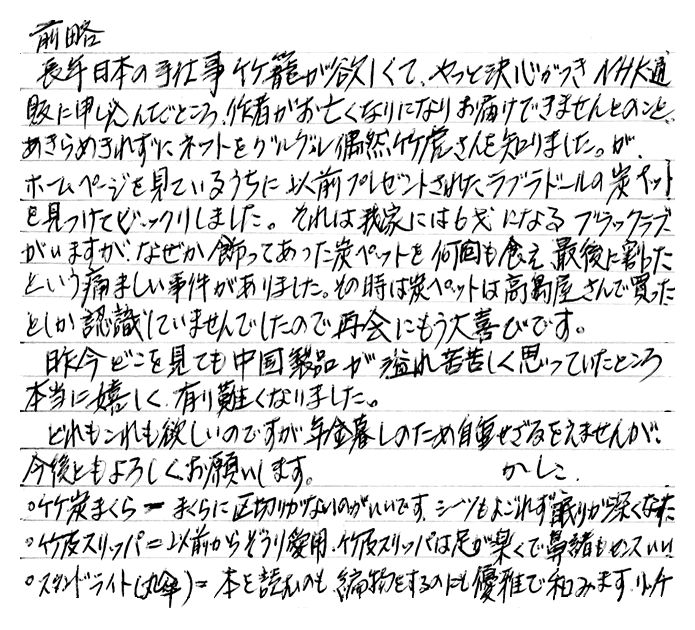 前略
長年日本の手仕事竹籠が欲しくて、やっと決心がつきNHK通
販に申し込んでところ、作者がお亡くなりになりお届けできませんとのこと、
あきらめきれずにネットをグルグル偶然竹虎さんを知りました。が、
ホームページを見ているうちに以前プレゼントされたラブラドールの炭ペット
を見つけてビックリしました。それは我家には6才になるブラックラブ
がいますが、なぜか飾ってあった炭ペットを何回も食え、最後に割った
という痛ましい事件がありました。その時は炭ペットは高島屋さんで買った
としか認識していませんでしたので再会にもう大喜びです。
昨今どこを見ても中国製品が溢れ苦苦しく思っていたところ
本当に嬉しく、有り難くなりました。
どれもこれも欲しいのですが年金暮しのため自重せざるをえませんが、
今後ともよろしくお願いします。 かしこ.
○竹炭まくら＝まくらに区切りがないのがいいです、シーツもよごれず眠りが深くなった
○竹皮スリッパ＝以前からぞうり愛用、竹皮スリッパは足が楽くで鼻緒もセンスいい
○スタンドライト(丸傘)＝本を読むのも、編物をするのにも優雅で和みます.